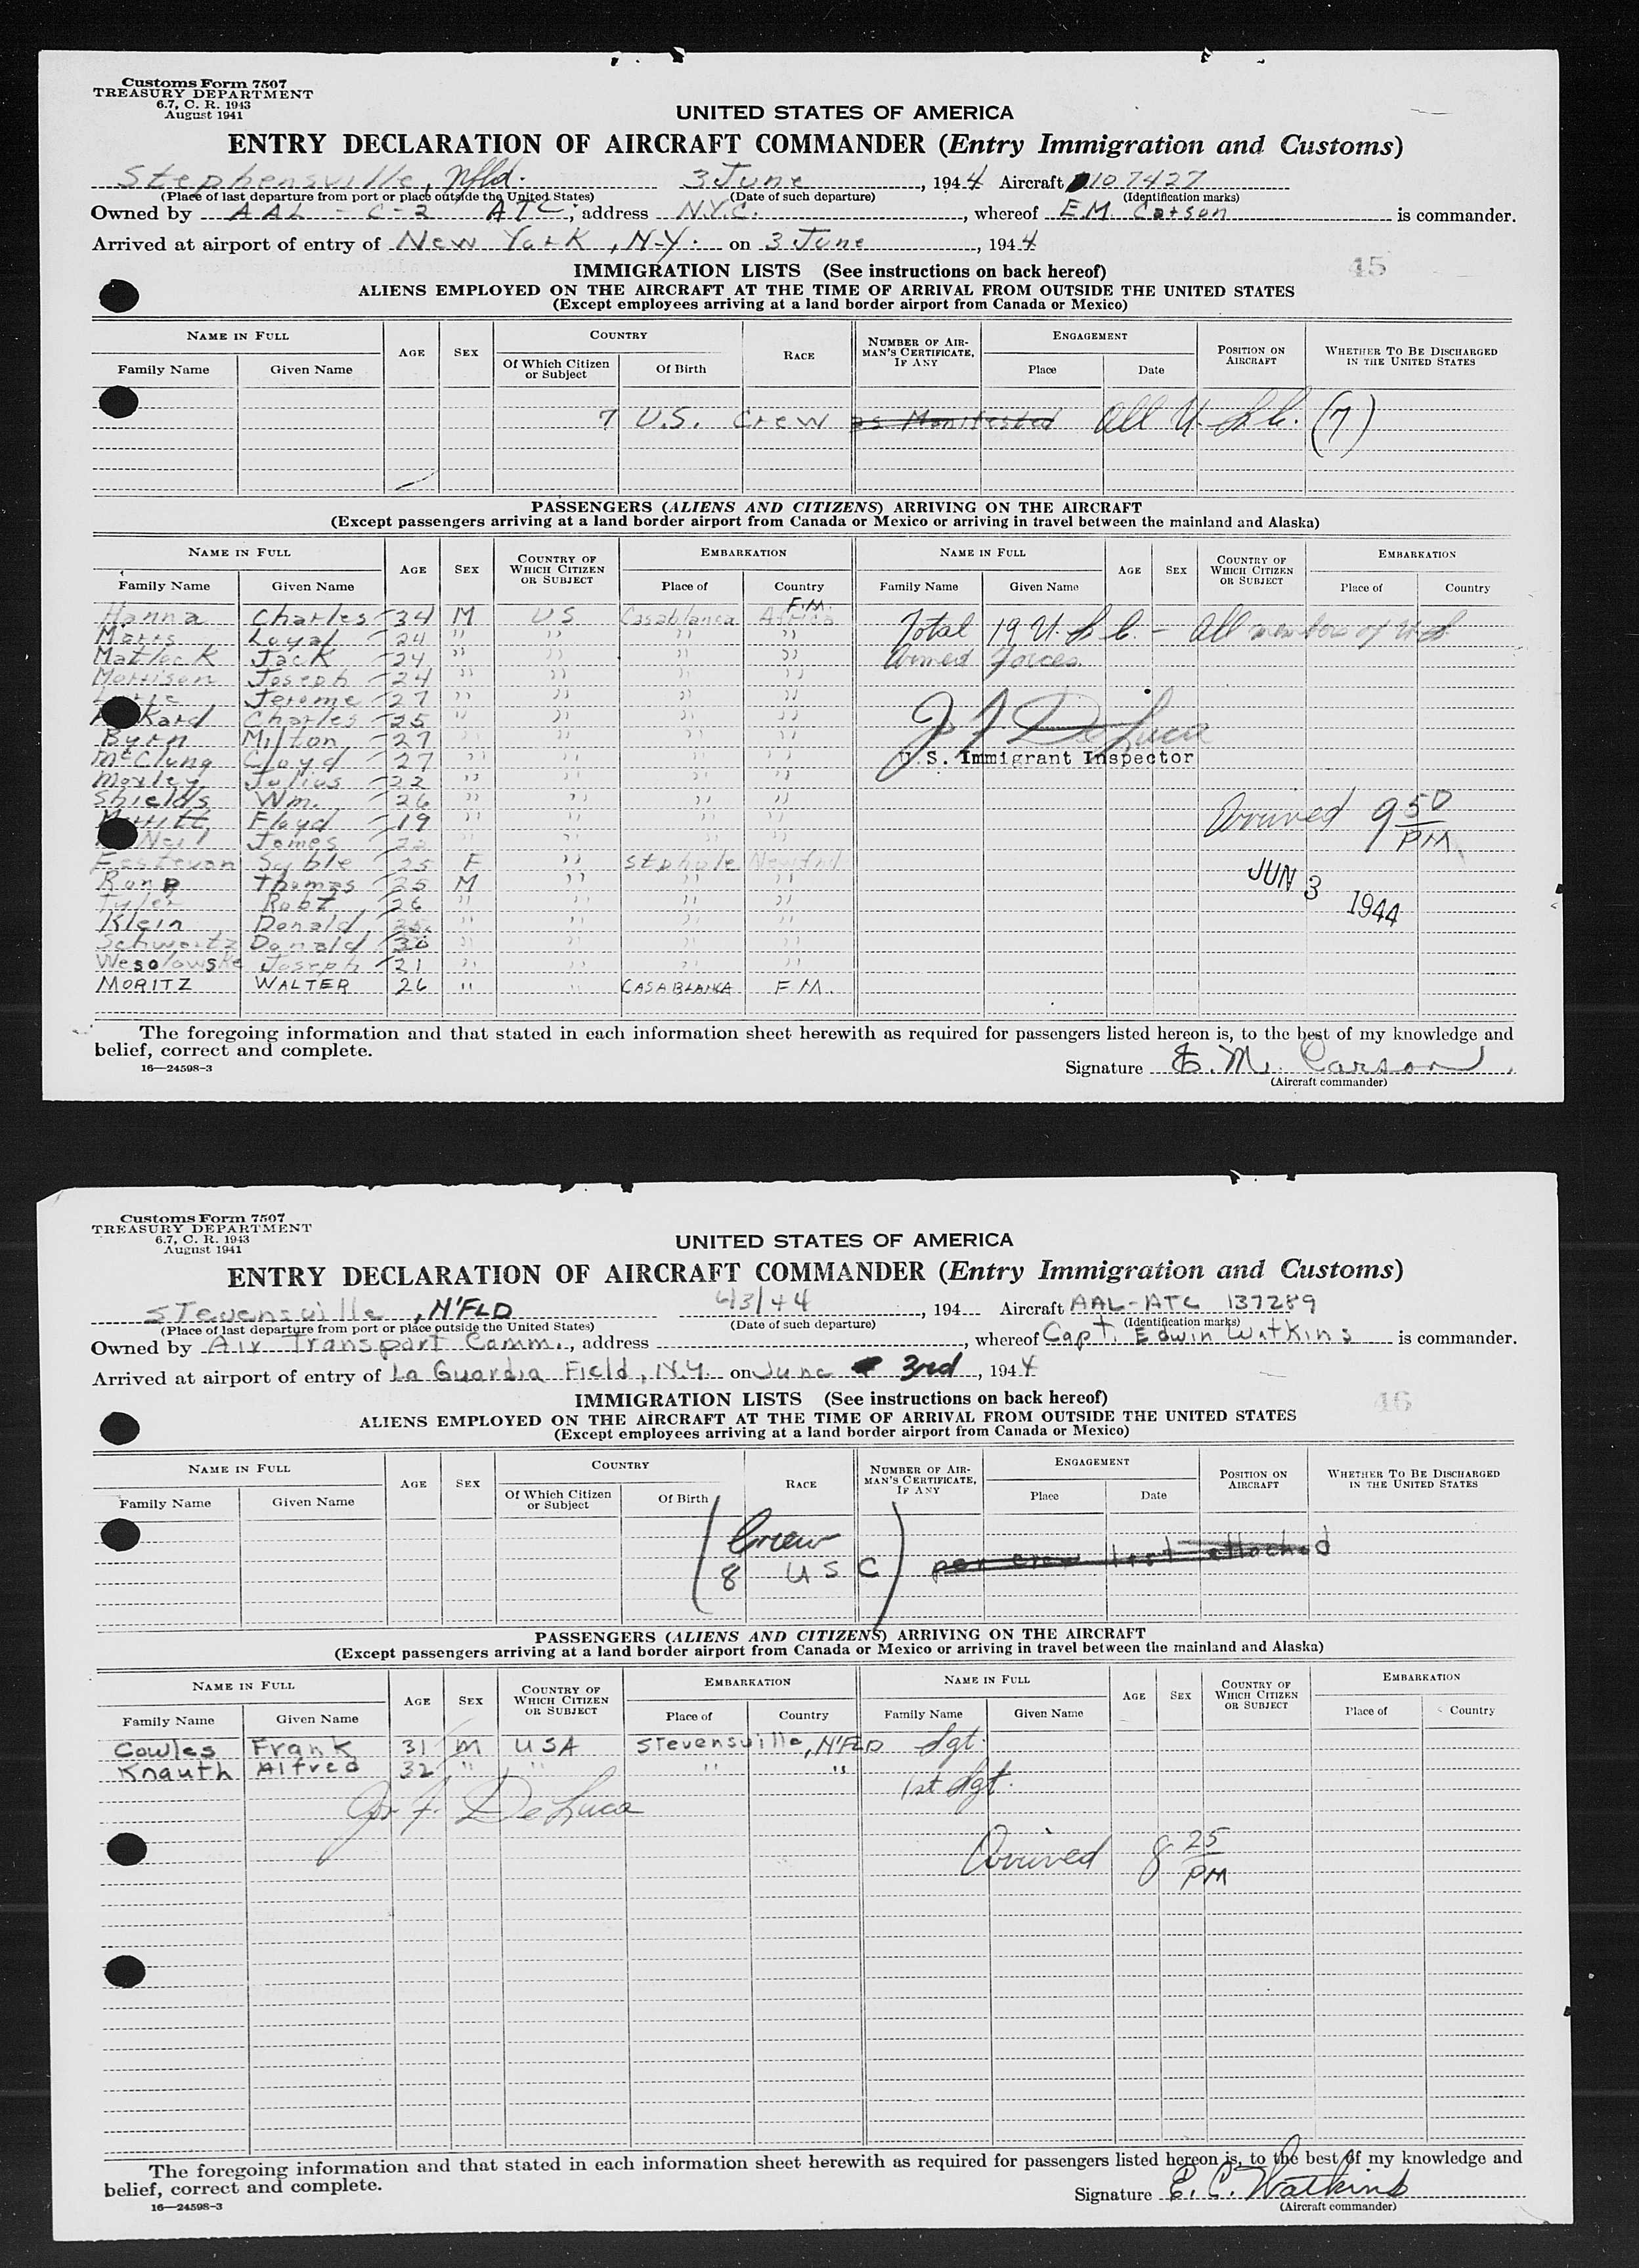 Customs Form 7507
TREASURY DEPARTMENT
6.7, C. R. 1943
August 1941
UNITED STATES OF AMERICA
ENTRY DECLARATION OF AIRCRAFT COMMANDER (Entry Immigration and Customs)
Stephensville, Nfld. 3 June, 1944 Aircraft 107427
(Place of last departure from port or place outside the United States) (Date of such departure) (Identification marks)
Owned by AAL - C-2 ATC, address N.Y.C., whereof E.M. Carson is commander.
Arrived at airport of entry of New York, N.Y. on 3 June, 1944
45
IMMIGRATION LISTS (See instructions on back hereof)
ALIENS EMPLOYED ON THE AIRCRAFT AT THE TIME OF ARRIVAL FROM OUTSIDE THE UNITED STATES
(Except employees arriving at a land border airport from Canada or Mexico)
NAME IN FULL AGE SEX COUNTRY RACE NUMBER OF AIRMAN'S CERTIFICATE, IF ANY ENGAGEMENT POSITION ON AIRCRAFT WHETHER TO BE DISCHARGED IN THE UNITED STATES
Family Name Given Name Of Which Citizen or Subject Of Birth Place Date
7 U.S. Crew as Manifested All U.S.C. (7)
PASSENGERS (ALIENS AND CITIZENS) ARRIVING ON THE AIRCRAFT
(Except passengers arriving at a land border airport from Canada or Mexico or arriving in travel between the mainland and Alaska)
NAME IN FULL AGE SEX COUNTRY OF WHICH CITIZEN OR SUBJECT EMBARKATION NAME IN FULL AGE SEX COUNTRY OF WHICH CITIZEN OR SUBJECT EMBARKATION
Family Name Given Name Place of Country Family Name Given Name Place of Country
F.M.
Hanna Charles 34 M US Casablanca Africa Total 19 U.S.C. - All members of U.S.
Maris Loyal 24 " " " " Armed Forces.
Matlock Jack 24 " " " "
Morrison Joseph 24 " " " "
Jerome 27 " " " "
kard Charles 25 " " " "
Byrn Milton 27 " " " "
McClung Cloyd 27 " " " "
J F DeLuca
U.S. Immigrant Inspector
Moxley Julius 22 " " " "
Shields Wm. 26 " " " "
Merritt Floyd 19 " " " "
Neil James 22 " " " "
Arrived 9 50 PM
Eestevan Syble 25 F " Stphvle Newfnd
Ronp Thomas 25 M " " "
Tyler Robt 26 " " " "
JUN 3 1944
Klein Donald " " " "
Schwartz Donald 30 " " " "
Wesolowske Joseph 21 " " " "
MORITZ WALTER 26 " " CASABLANCA F M.
The foregoing information and that stated in each information sheet herewith as required for passengers listed hereon is, to the best of my knowledge and
belief, correct and complete.
16—24598-3
Signature E. M. Carson
(Aircraft commander)
Customs Form 7507
TREASURY DEPARTMENT
6.7, C. R. 1943
August 1941
UNITED STATES OF AMERICA
ENTRY DECLARATION OF AIRCRAFT COMMANDER (Entry Immigration and Customs)
Stevensville, N'FLD 6/3/44, 194 Aircraft AAL-ATC 137289
(Place of last departure from port or place outside the United States) (Date of such departure) (Identification marks)
Owned by Air Transport Comm., address , whereof Capt. Edwin Watkins is commander.
Arrived at airport of entry of La Guardia Field, N.Y. on June 3rd, 1944
46
IMMIGRATION LISTS (See instructions on back hereof)
ALIENS EMPLOYED ON THE AIRCRAFT AT THE TIME OF ARRIVAL FROM OUTSIDE THE UNITED STATES
(Except employees arriving at a land border airport from Canada or Mexico)
NAME IN FULL AGE SEX COUNTRY RACE NUMBER OF AIRMAN'S CERTIFICATE, IF ANY ENGAGEMENT POSITION ON AIRCRAFT WHETHER TO BE DISCHARGED IN THE UNITED STATES
Family Name Given Name Of Which Citizen or Subject Of Birth Place Date
(Crew
8 USC) per crew list attached
PASSENGERS (ALIENS AND CITIZENS) ARRIVING ON THE AIRCRAFT
(Except passengers arriving at a land border airport from Canada or Mexico or arriving in travel between the mainland and Alaska)
NAME IN FULL AGE SEX COUNTRY OF WHICH CITIZEN OR SUBJECT EMBARKATION NAME IN FULL AGE SEX COUNTRY OF WHICH CITIZEN OR SUBJECT EMBARKATION
Family Name Given Name Place of Country Family Name Given Name Place of Country
Cowles Frank 31 M USA Stevensville, N'FLD Sgt.
Knauth Alfred 32 " " " " 1st Sgt.
Jos F. DeLuca
Arrived 8 25 PM
The foregoing information and that stated in each information sheet herewith as required for passengers listed hereon is, to the best of my knowledge and
belief, correct and complete.
16—24598-3
Signature E. C. Watkins
(Aircraft commander)